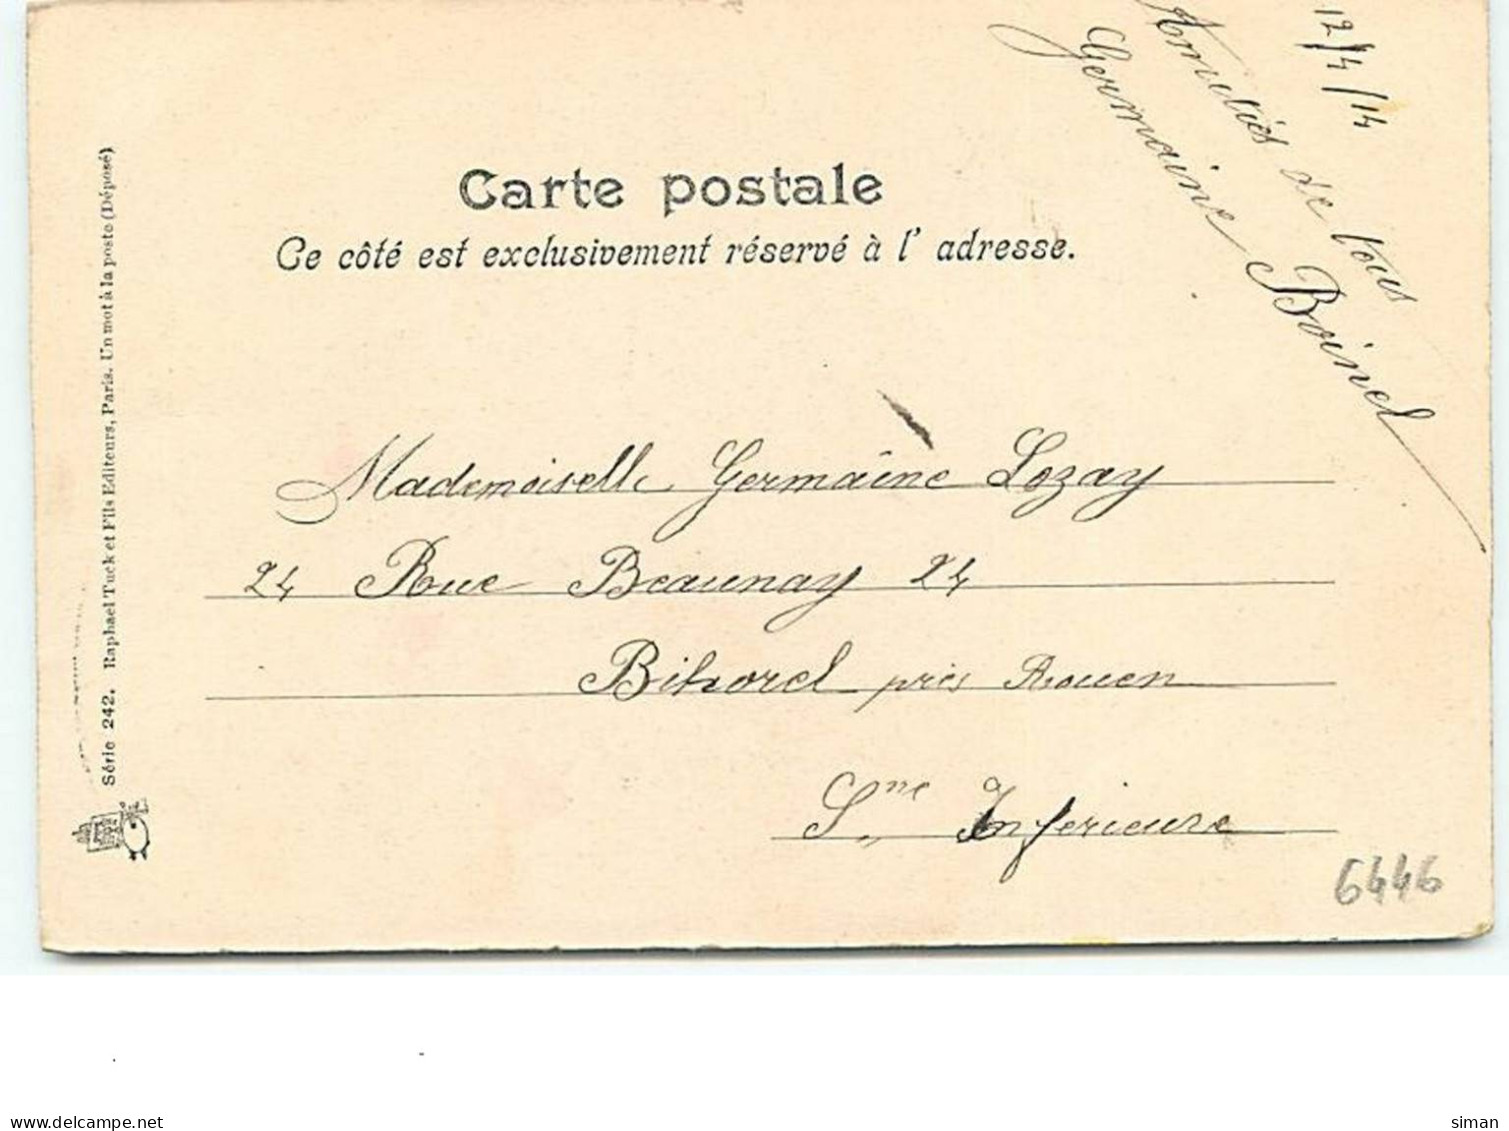 12/4/14
Amitiés de tous
Germaine Boinel
Carte postale
Ce côté est exclusivement réservé à l' adresse.
Série 242. Raphael Tuck et Fils Editeurs, Paris. Un mot à la poste (Déposé)
Mademoiselle Germaine Lozay
24 Rue Beaunay 24
Bihorel près Rouen
Sne Inferieure
6446
www.delcampe.net
siman